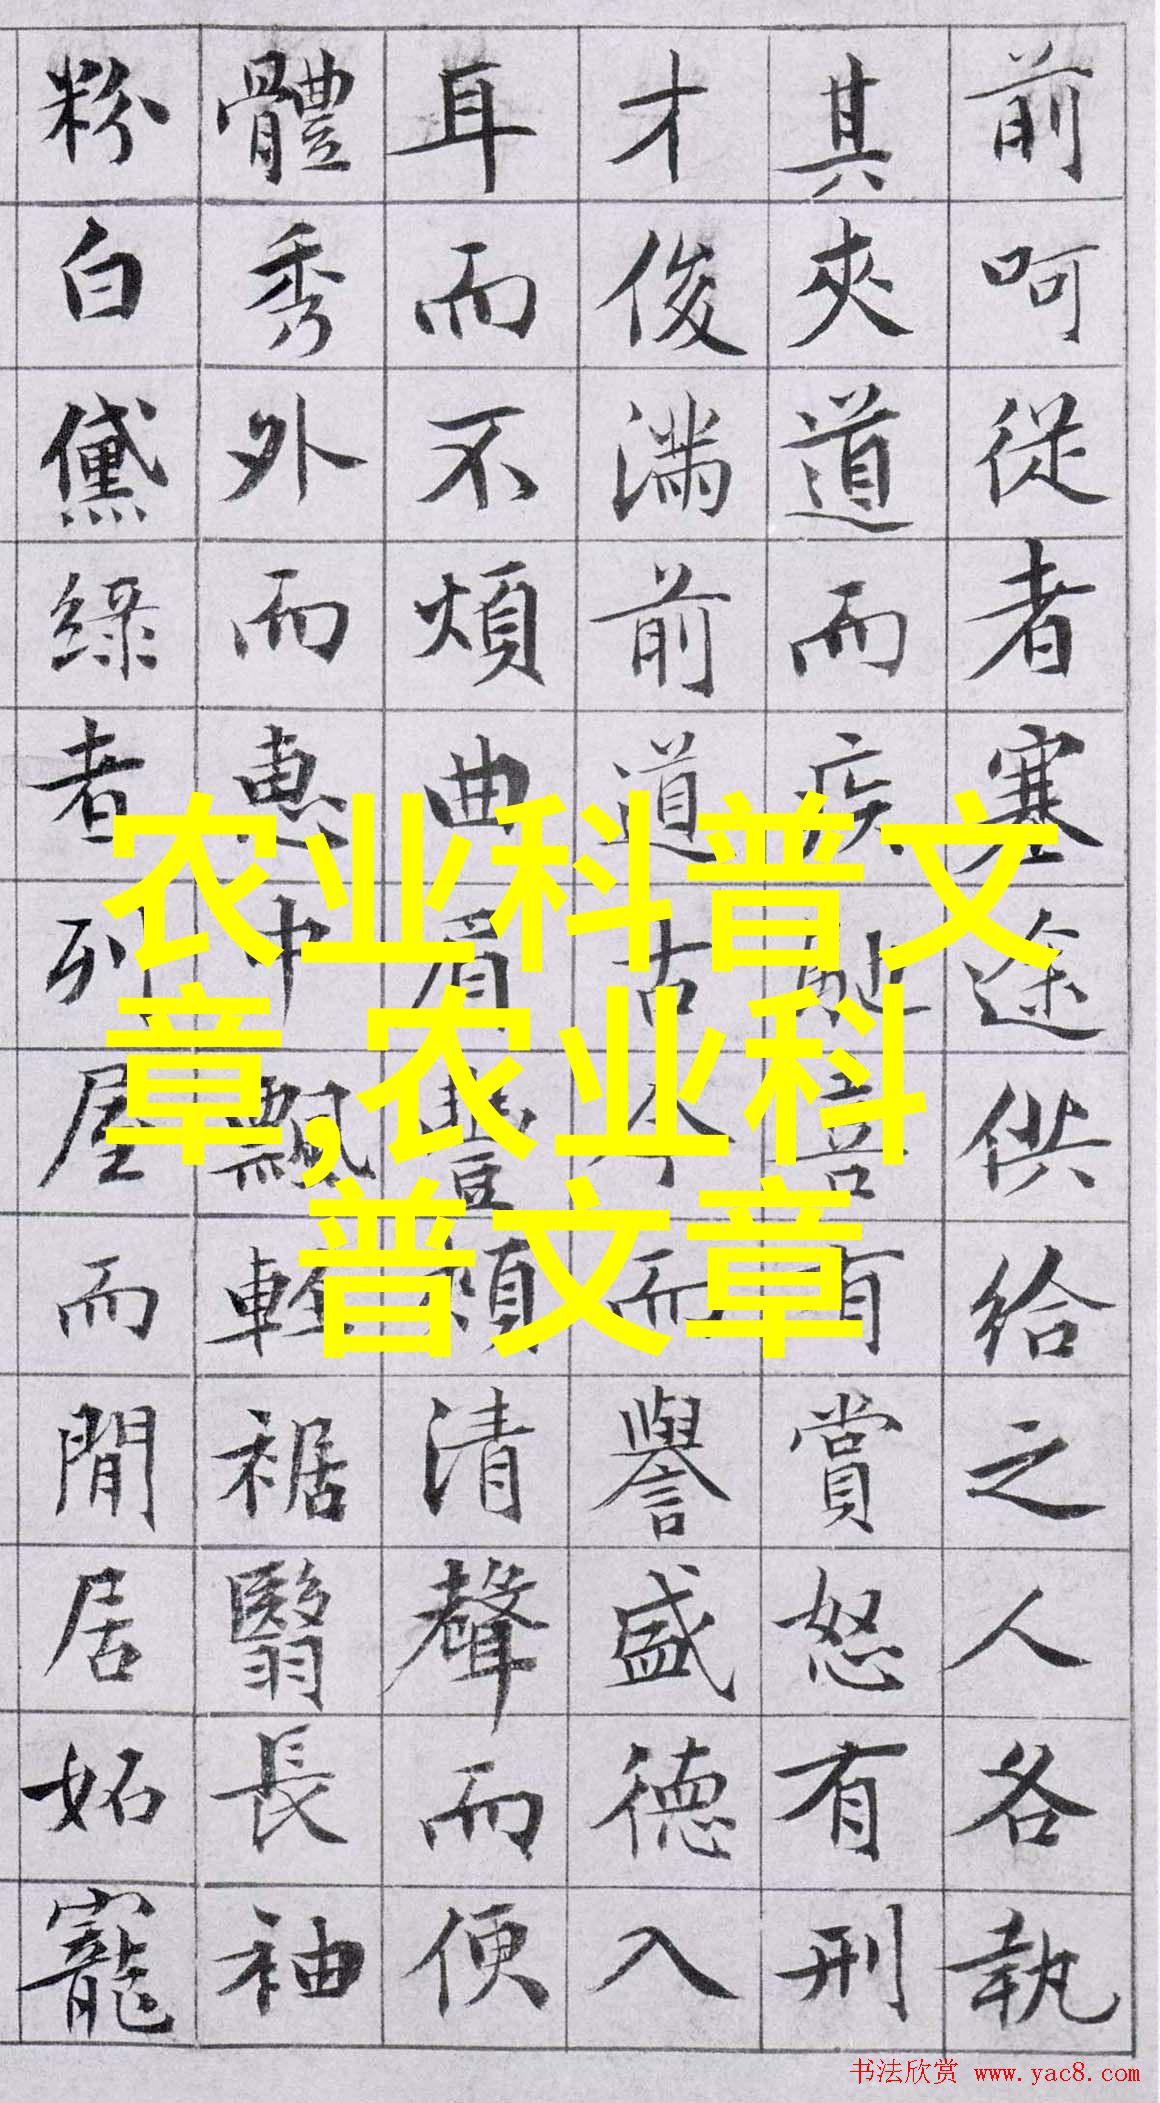 前呵從者塞途供給之人各執
其夾道而疾馳喜有賞怒有刑
才俊滿前道古今而譽盛德入
耳而不煩曲眉豐頰清聲而便
體秀外而惠中飄輕裾翳長袖
粉白黛綠者列屋而閒居妬寵
农业科普文
章,农业科
普文章
书法欣赏 www.yac8.com